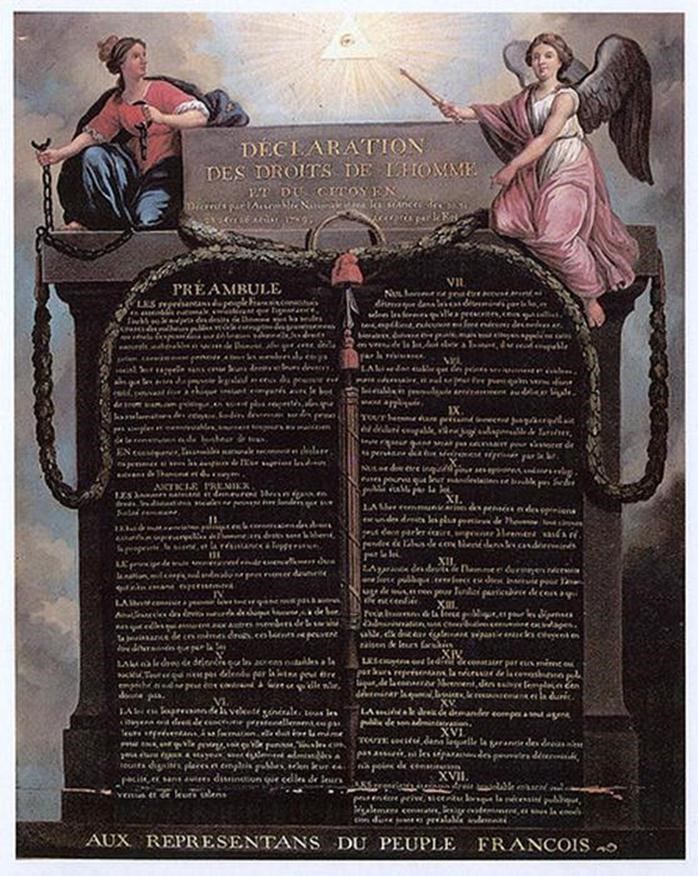 DÉCLARATION
DES DROITS DE L'HOMME
ET DU CITOYEN
Décrétés par l'Assemblée Nationale dans les séances des 20, 21
acceptés par le Roi
PRÉAMBULE
LES représentans du peuple François constitués
en assemblée nationale, considérant que l'ignorance,
l'oubli ou le mépris des droits de l'homme sont les seules
causes des malheurs publics et de la corruption des gouvernemens
ont résolu d'exposer dans une déclaration solemnelle, les droits
naturels, inaliénables et sacrés de l'homme, afin que cette décla
ration, constamment présente à tous les membres du corps
social, leur rappelle sans cesse leurs droits et leurs devoirs
afin que les actes du pouvoir législatif et ceux du pouvoir exé
cutif, pouvant être à chaque instant comparés avec le but
de toute institution politique, en soient plus respectés, afin que
les réclamations des citoyens, fondées désormais sur des princi
pes simples et incontestables, tournent toujours au maintien
de la constitution et du bonheur de tous.
EN conséquence, l'assemblée nationale reconnoit et déclare
en présence et sous les auspices de l'Etre suprême les droits
suivans de l'homme et du citoyen.
ARTICLE PREMIER
LES hommes naissent et demeurent libres et égaux en
droits, les distinctions sociales ne peuvent être fondées que sur
l'utilité commune.
II.
LE but de toute association politique est la conservation des droits
naturels et imprescriptibles de l'homme; ces droits sont la liberté,
la propriété, la sûreté, et la résistance à l'oppression.
III.
LE principe de toute souveraineté réside essentiellement dans
la nation, nul corps, nul individu ne peut exercer d'autorité
qui n'en émane expressément.
IV.
LA liberté consiste à pouvoir faire tout ce qui ne nuit pas à autrui
Ainsi, l'exercice des droits naturels de chaque homme, n'a de bor
nes que celles qui assurent aux autres membres de la société
la jouissance de ces mêmes droits, ces bornes ne peuvent
être déterminées que par la loi
V.
LA loi n'a le droit de défendre que les actions nuisibles à la
société. Tout ce qui n'est pas défendu par la loi ne peut être
empêché et nul ne peut être contraint à faire ce qu'elle n'or
donne pas.
VI.
LA loi est l'expression de la volonté générale; tous les
citoyens ont droit de concourir personnellement, ou par
leurs représentans, à sa formation, elle doit être la même
pour tous, soit qu'elle protège, soit qu'elle punisse, Tous les cito
yens étant égaux à ses yeux, sont également admissibles à
toutes dignités, places et emplois publics, selon leur ca
pacité, et sans autres distinction que celles de leurs
vertus et de leurs talens
VII.
NUL homme ne peut être accusé, arrêté ni
détenu que dans les cas déterminés par la loi, et
selon les formes qu'elle a prescrites, ceux qui sollici
tent, expédient, exécutent ou font exécuter des ordres ar
bitraires, doivent être punis, mais tout citoyen appelé ou saisi
en vertu de la loi, doit obéir à l'instant, il se rend coupable
par la résistance.
VIII.
LA loi ne doit établir que des peines strictement et évidem
ment nécessaires, et nul ne peut être puni qu'en vertu d'une
loi établie et promulguée antérieurement au délit, et légale
ment appliquée
IX.
TOUT homme étant présumé innocent jusqu'à ce qu'il ait
été déclaré coupable, s'il est jugé indispensable de l'arrêter,
toute rigueur qui ne seroit pas nécessaire pour s'assurer de
sa personne doit être sévèrement réprimée par la loi.
X.
NUL ne doit être inquiété pour ses opinions, mêmes religi
euses pourvu que leur manifestation ne trouble pas l'ordre
public établi par la loi.
XI.
LA libre communication des pensées et des opinions
est un des droits les plus précieux de l'homme; tout citoyen
peut donc parler, écrire, imprimer librement sauf à ré
pondre de l'abus de cette liberté dans les cas déterminés
par la loi.
XII.
LA garantie des droits de l'homme et du citoyen nécessite
une force publique; cette force est donc instituée pour l'avan
tage de tous, et non pour l'utilité particulière de ceux à qui
elle est confiée
XIII.
POUR l'entretien de la force publique, et pour les dépenses
d'administration, une contribution commune est indispen
sable, elle doit être également répartie entre les citoyens en
raison de leurs facultés
XIV.
LES citoyens ont le droit de constater par eux même ou
par leurs représentans, la nécessité de la contribution pub
lique, de la consentir librement, d'en suivre l'emploi, et d'en
déterminer la quotité, l'assiette, le recouvrement et la durée.
XV.
LA société a le droit de demander compte à tout agent
public de son administration.
XVI.
TOUTE société, dans laquelle la garantie des droits n'est
pas assurée, ni les séparation des pouvoirs déterminée,
n'a point de constitution
XVII.
LES propriétés étant un droit inviolable et sacré, nul ne
peut en être privé, si ce n'est lorsque la nécessité publique,
légalement constatée, l'exige évidemment, et sous la condi
tion d'une juste et préalable indemnité
AUX REPRESENTANS DU PEUPLE FRANCOIS